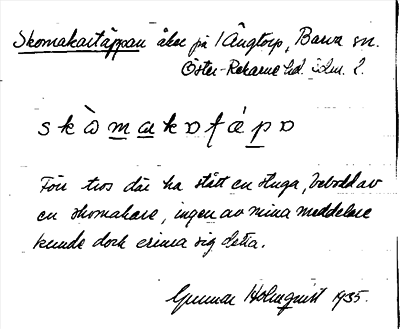 Skomakartäppan åker på Långtorp, Barva sn.
Öster-Rekarne hd. Sdm. l.
skòmakoƒápo
Förr tros där ha stått en stuga, bebodd av
en skomakare, ingen av mina meddelare
kunde dock erinra sig detta.
Gunnar Holmquist 1935.